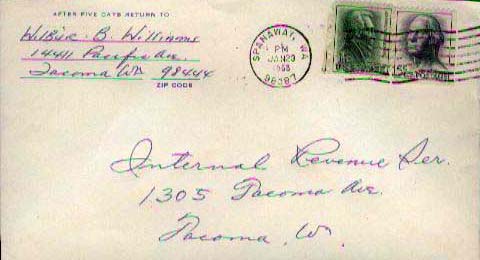 AFTER FIVE DAYS RETURN TO
Wilbur B. Williams
14411 Pacific Av.
Tacoma Wn 98444
ZIP CODE
SPANAWAY, WA
PM
JAN 23
98387
Internal Revenue Ser.
1305 Tacoma Ave.
Tacoma, Wn.